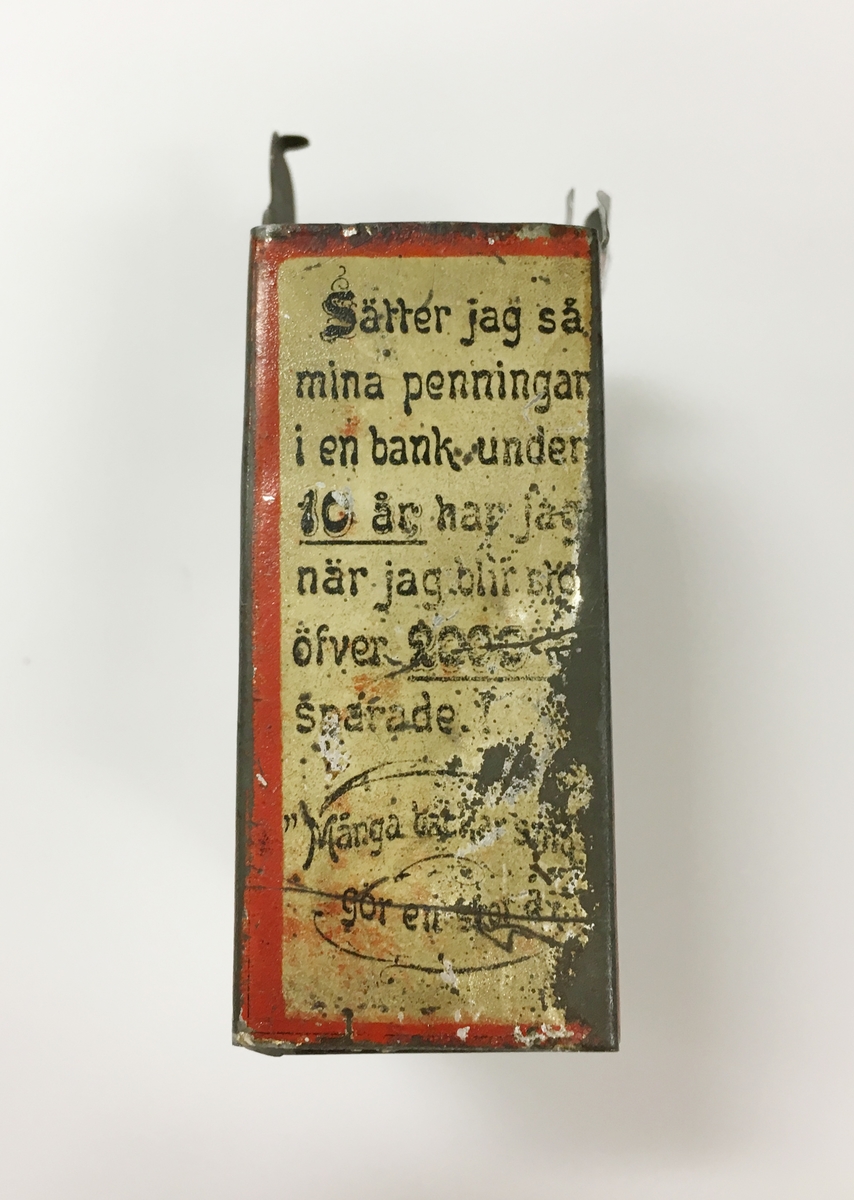 Sätter jag så
mina penningar
i en bank under
10 år har jag
när jag blir
öfver 2000
sparade.
"Många bäckar små
gör en stor å